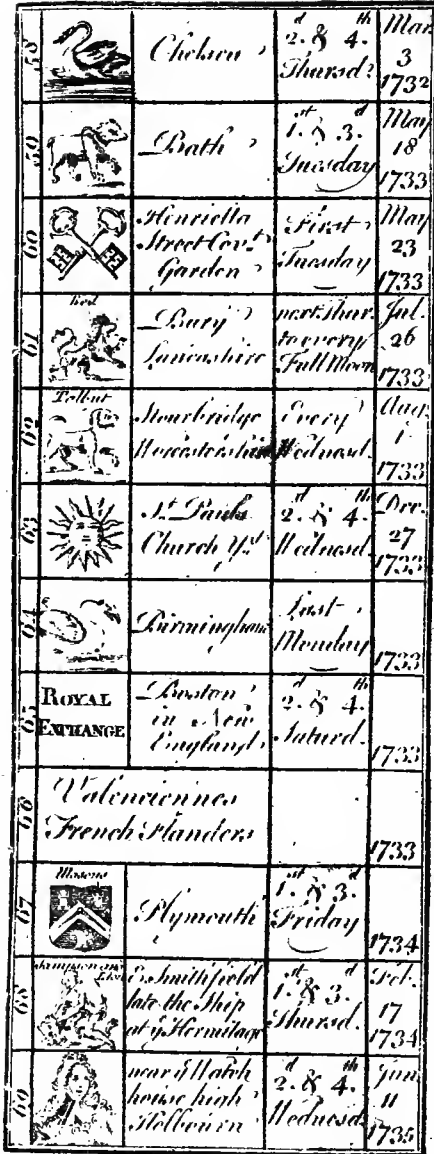 58
Chelsea
2.d & 4.th
Thursd.
Mar.
3
1732
59
Bath
1.st & 3.d
Tuesday
May
18
1733
60
Henrietta
Street Cov.t
Garden
First
Tuesday
May
23
1733
61
Red
Bury
Lancashire
next Thur.
to every
Full Moon
Jul.
26
1733
62
Talbut
Stourbridge
Worcestershire
Every
Wednesd.
Aug.
1
1733
63
St. Pauls
Church Yd.
2.d & 4.th
Wednesd.
Dec.
27
1733
64
Birmingham
Last
Monday
1733
65
ROYAL
EXCHANGE
Boston
in New
England
2.d & 4.th
Saturd.
1733
66
Valenciennes
French Flanders
1733
67
Masons
Plymouth
1.st & 3.d
Friday
1734
68
E. Smithfield
late the Ship
at ye Hermitage
1.st & 3.d
Thursd.
Feb.
17
1734
69
near ye Watch
house high
Holbourn
2.d & 4.th
Wednesd.
Jun.
11
1735